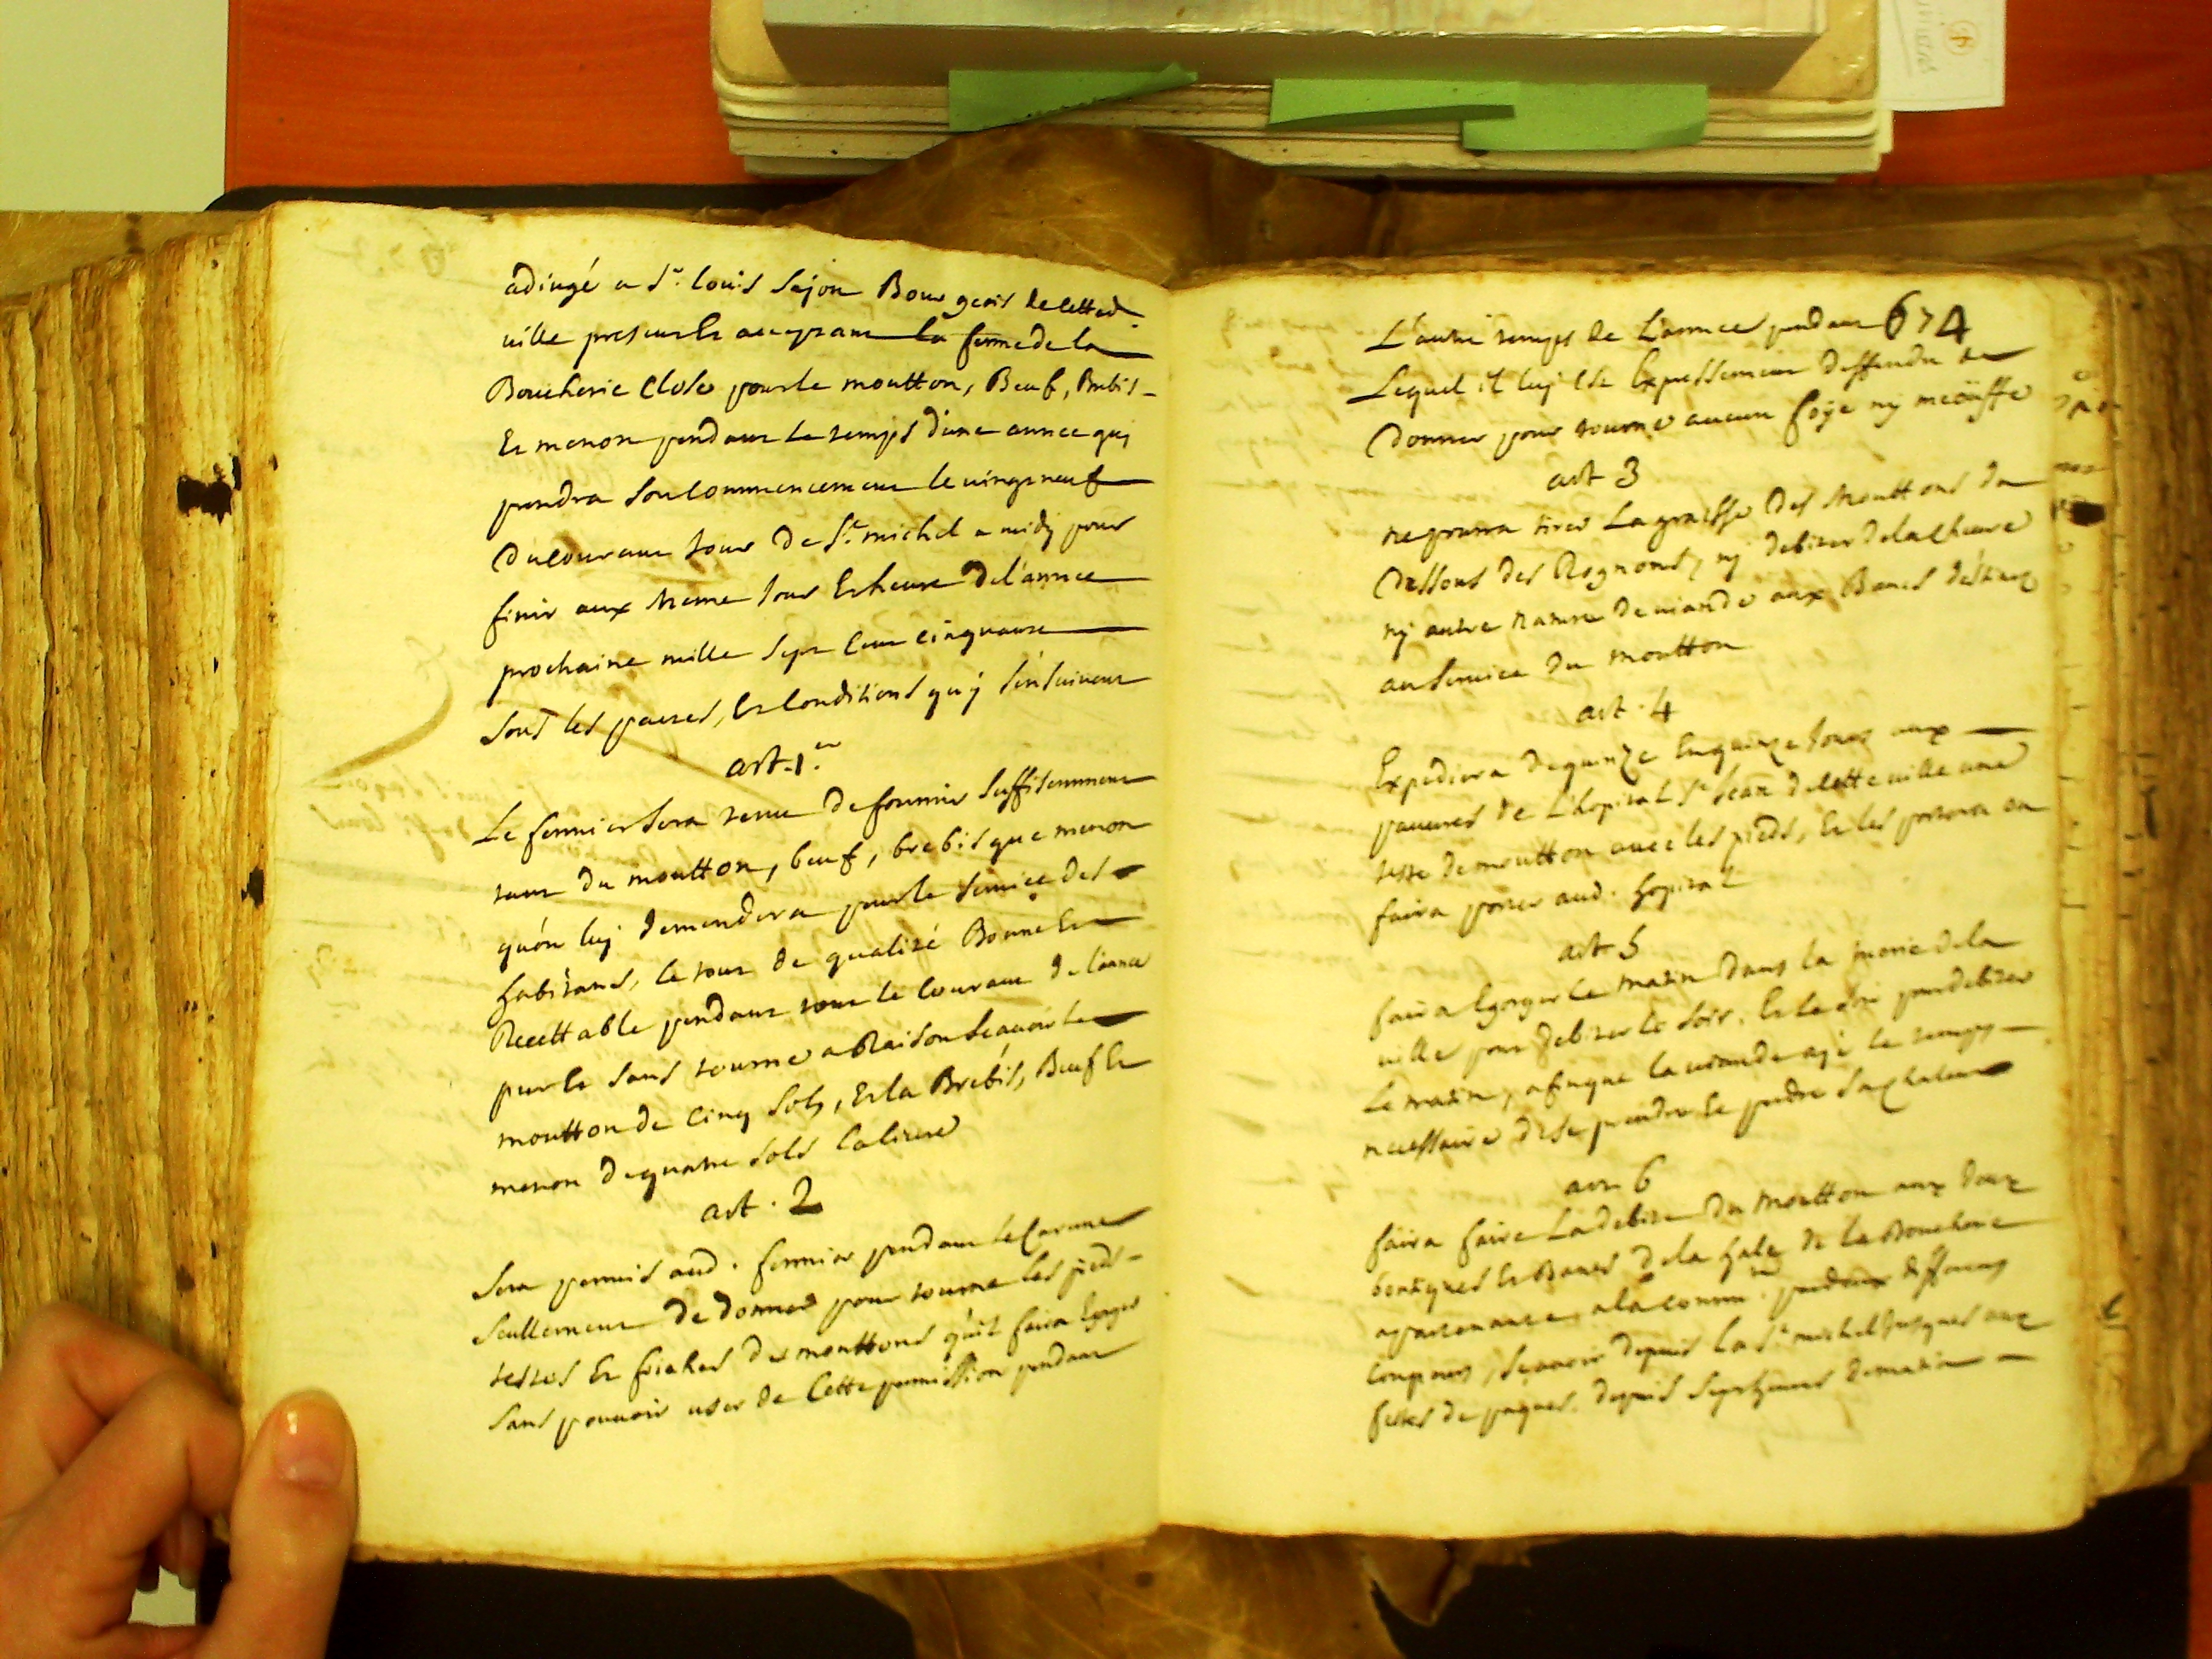 adiugé a Sr. louis Sajon Bourgeois de cette d.
ville present et acceptant la ferme de la
Boucherie Close pour le moutton, Beuf, Brebis
Et menon pendant le temps d'une annee quj
prendra Son Commencement le vingt neuf
du Courant Jour de St. michel a midy pour
finir aux meme Jour Et heure de l'annee
prochaine mille Sept Cent cinquante
Sous les pactes, Et Conditions quj s'ensuivent
art. 1er.
Le fermier Sera tenu de fournir Suffisemment
tant du moutton, beuf, brebis que menon
qu'on luj demendera pour le Service des
habitans, le tout de qualité Bonne Et
Recettable pendant tout le Courant de l'annee
pur Et Sans tourne a Raison Scavoir le
moutton de Cinq Sols, Et la Brebis, Beuf Et
menon de quatre Sols la livre
art. 2
Sera permis aud. fermier pendant le Careme
Seullement de donner pour tourne les pieds
testes Et des mouttons qu'il faira Egorger
Sans pouvoir user de Cette permission pendant
L'autre temps de L'annee pendant 674
Lequel il luj Est Expressement deffendu de
donner pour tourne aucun foije nj meoüffe
art 3
ne pourra tirer La graisse des Mouttons du
dessous des Rognons, nj debiter de la Chevre
nj autre nature de viande aux Bancs déstinez
au Service du moutton
art. 4
Expediera de quinze En quinze Jours aux
pauvres de L'hopital St. Jean de Cette ville une
teste de moutton avec les pieds, Et les portera ou
faira porter aud. hopital
art 5
faira Egorger Le matin dans la de la
ville pour debiter le Soir, Et le Soir pour debiter
Le matin, afin que la viande aje le temps
necessaire de Se prendre Et perdre Sa Chaleur
art 6
faira faire La debite du Moutton aux deux
boutiques Et Bancs de la hale de la Boucherie
appartenante a la Commté.
coupeurs, Scavoir depuis la St. michel Jusques aux
festes de paques. depuis Sept heures du matin